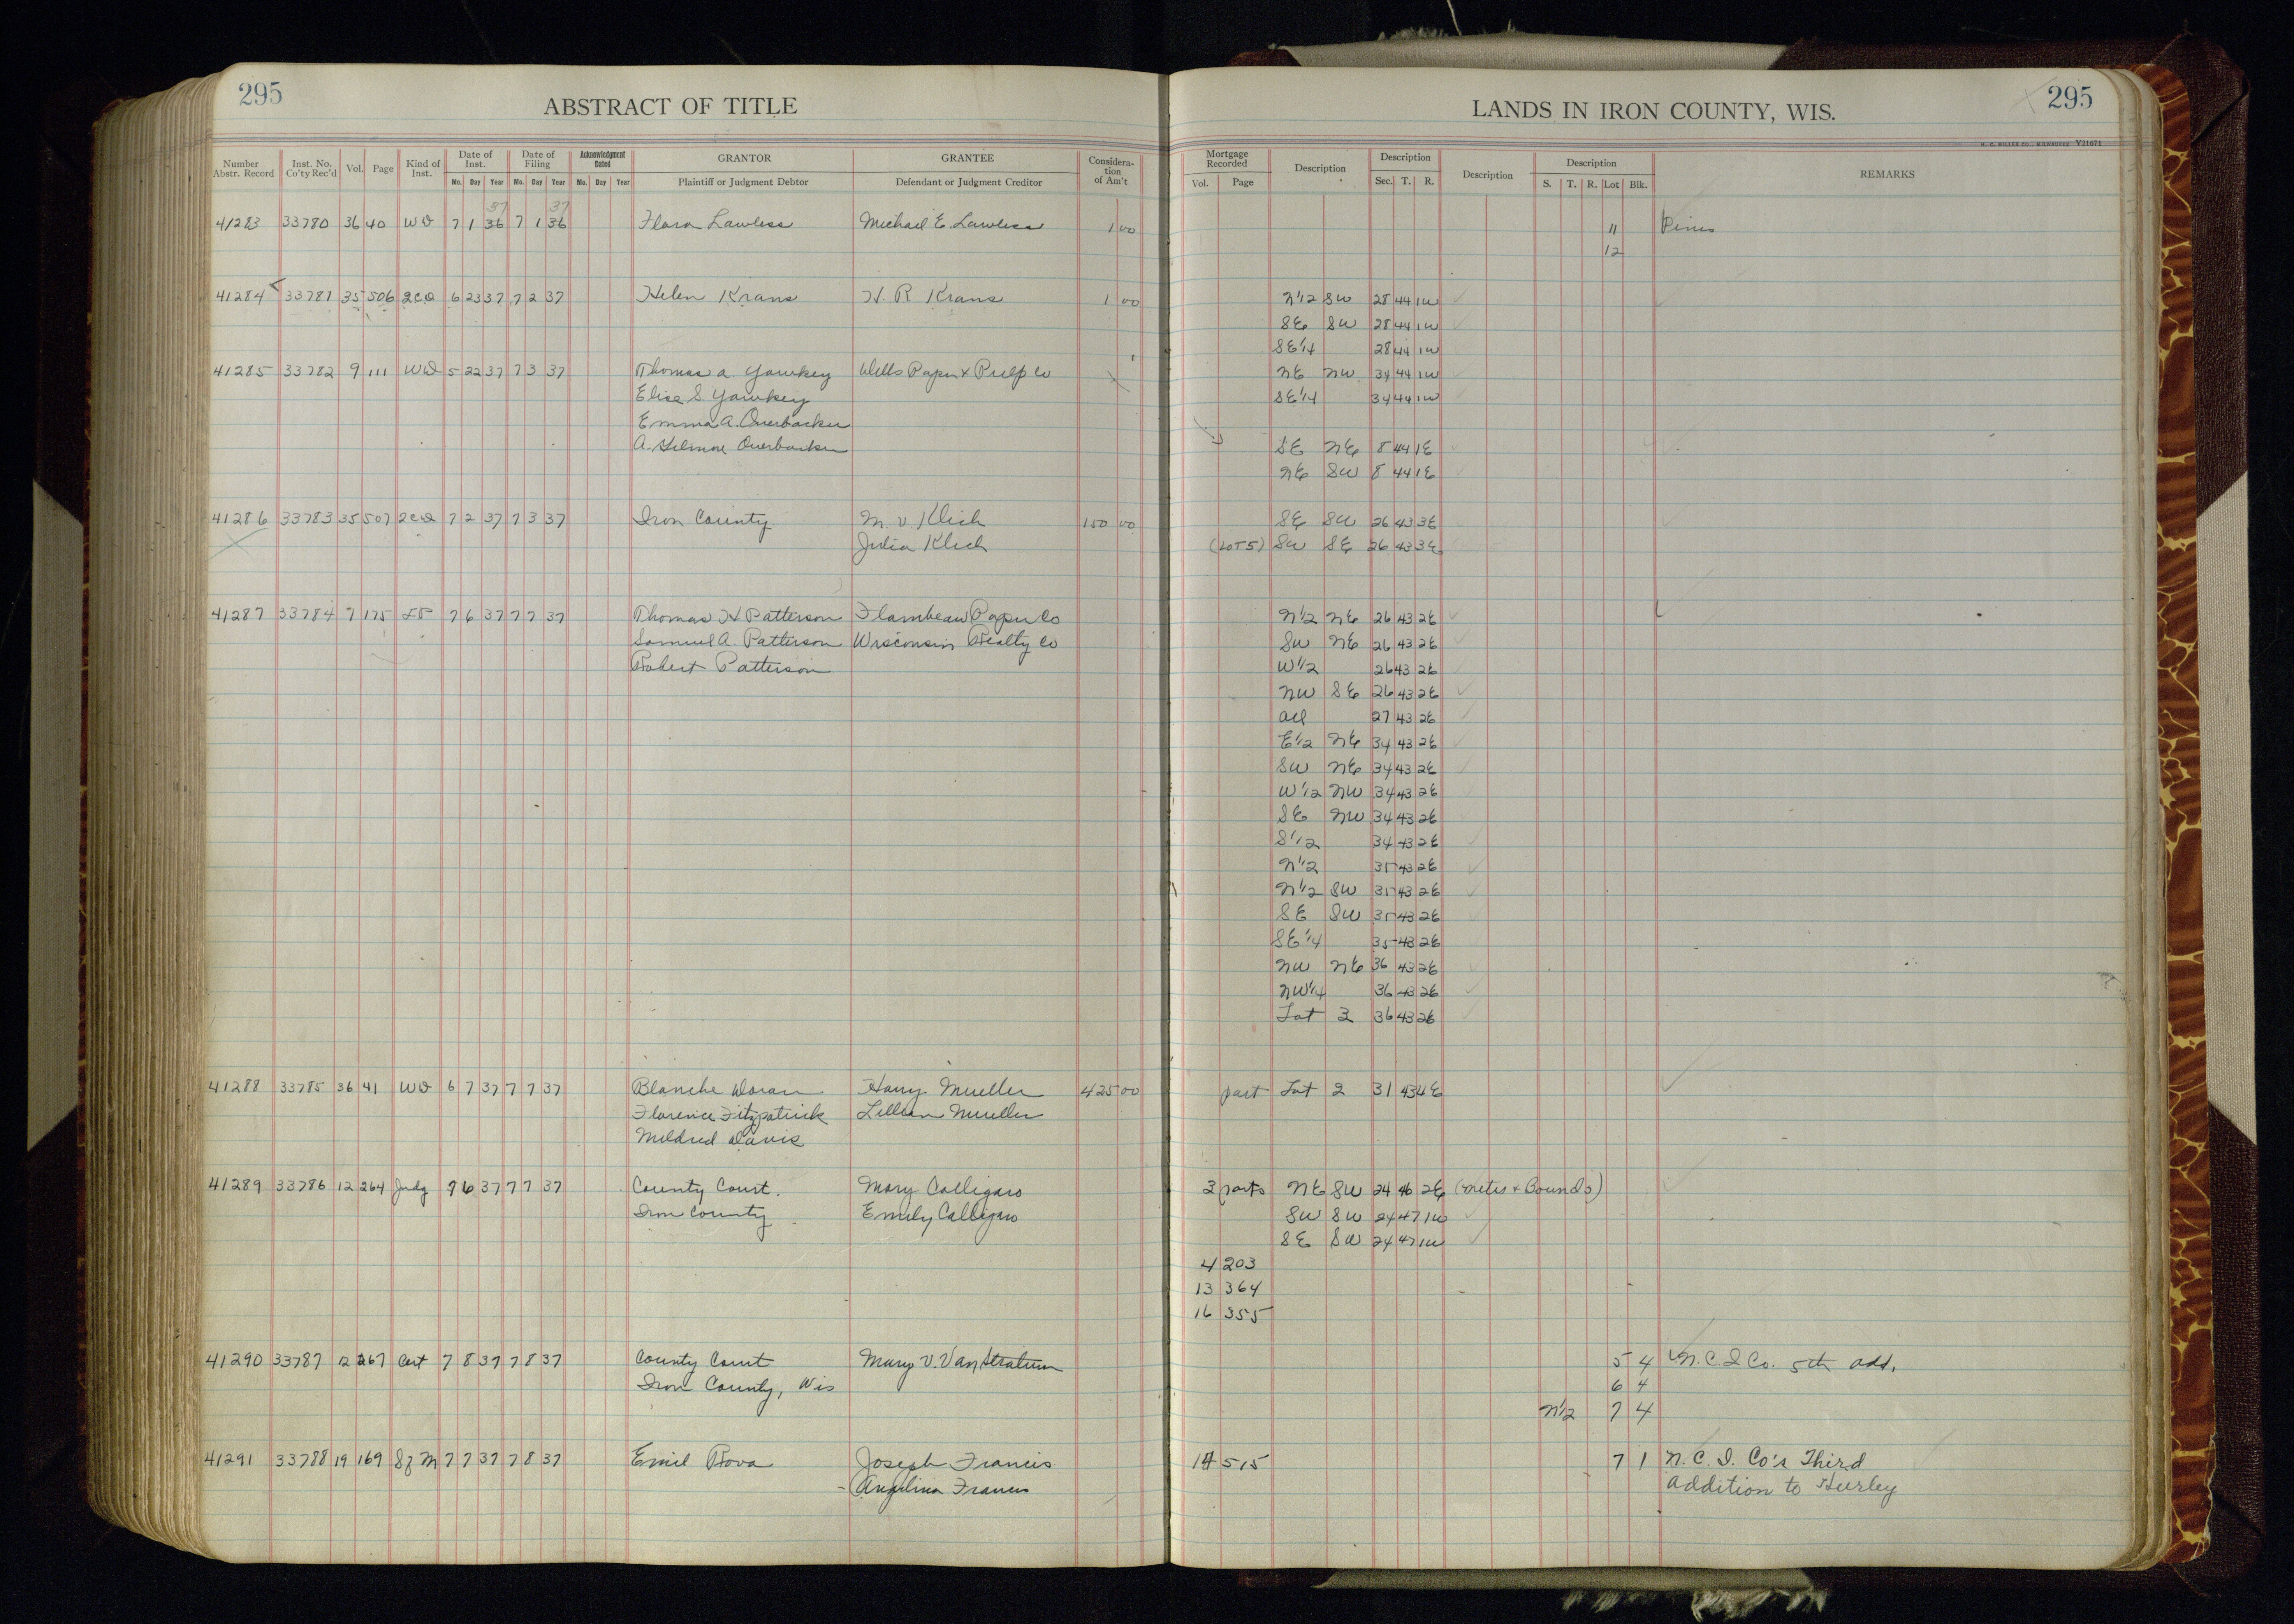 295
ABSTRACT OF TITLE
Number Abstr. Record Inst. No. Co'ty Rec'd Vol. Page Kind of Inst. Date of Inst. Mo. Day Year Date of Filing Mo. Day Year Acknowledgment Dated Mo. Day Year GRANTOR Plaintiff or Judgment Debtor GRANTEE Defendant or Judgment Creditor Consideration of Am't
37 37
41283 33780 36 40 WD 7 1 36 7 1 36 Flora Lawless Michael E. Lawless 1 00
41284 33781 35 506 2CD 6 23 37 7 2 37 Helen Krans H. R Krans 1 00
41285 33782 9 111 WD 5 22 37 7 3 37 Thomas A. Yawkey Wells Paper & Pulp Co
Elise S. Yawkey
Emma A. Ouerbacker
A. Gilmore Ouerbacker
41286 33783 35 507 2CD 7 2 37 7 3 37 Iron County M. V. Klich 150 00
Julia Klich
41287 33784 7 175 7 6 37 7 7 37 Thomas H Patterson Flambeau Paper Co
Samuel A. Patterson Wisconsin Realty Co
Robert Patterson
41288 33785 36 41 WD 6 7 37 7 7 37 Blanche Doran Harry Mueller 425 00
Florence Fitzpatrick Lillian Mueller
Mildred Davis
41289 33786 12 264 Judg 7 6 37 7 7 37 County Court. Mary Calligaro
Iron County Emily Calligaro
41290 33787 12 267 Cert 7 8 37 7 8 37 County Court Mary V. Van Stratum
Iron County, Wis
41291 33788 19 169 Sf M 7 7 37 7 8 37 Emil Rova Joseph Francis
Angelina Francis
LANDS IN IRON COUNTY, WIS.
295
H. C. MILLER CO., MILWAUKEE Y21071
Mortgage Recorded Vol. Page Description Description Sec. T. R. Description Description S. T. R. Lot Blk. REMARKS
11 Pines
12
N 1/2 SW 28 44 1W
SE SW 28 44 1W
SE 1/4 28 44 1W
NE NW 34 44 1W
SE 1/4 34 44 1W
SE NE 8 44 1E
NE SW 8 44 1E
SE SW 26 43 3E
(LOT 5) SW SE 26 43 3E
N 1/2 NE 26 43 2E
SW NE 26 43 2E
W 1/2 26 43 2E
NW SE 26 43 2E
all 27 43 2E
E 1/2 NE 34 43 2E
SW NE 34 43 2E
W 1/2 NW 34 43 2E
SE NW 34 43 2E
S 1/2 34 43 2E
N 1/2 35 43 2E
N 1/2 SW 35 43 2E
SE SW 35 43 2E
SE 1/4 35 43 2E
NW NE 36 43 2E
NW 1/4 36 43 2E
Lot 3 36 43 2E
part Lot 2 31 43 4E
2 parts NE SW 24 46 2E (Metes & Bounds)
SW SW 24 47 1W
SE SW 24 47 1W
4 203
13 364
16 355
5 4 N. C. I Co. 5th add.
6 4
N 1/2 7 4
14 515 7 1 N. C. I. Co's Third
Addition to Hurley